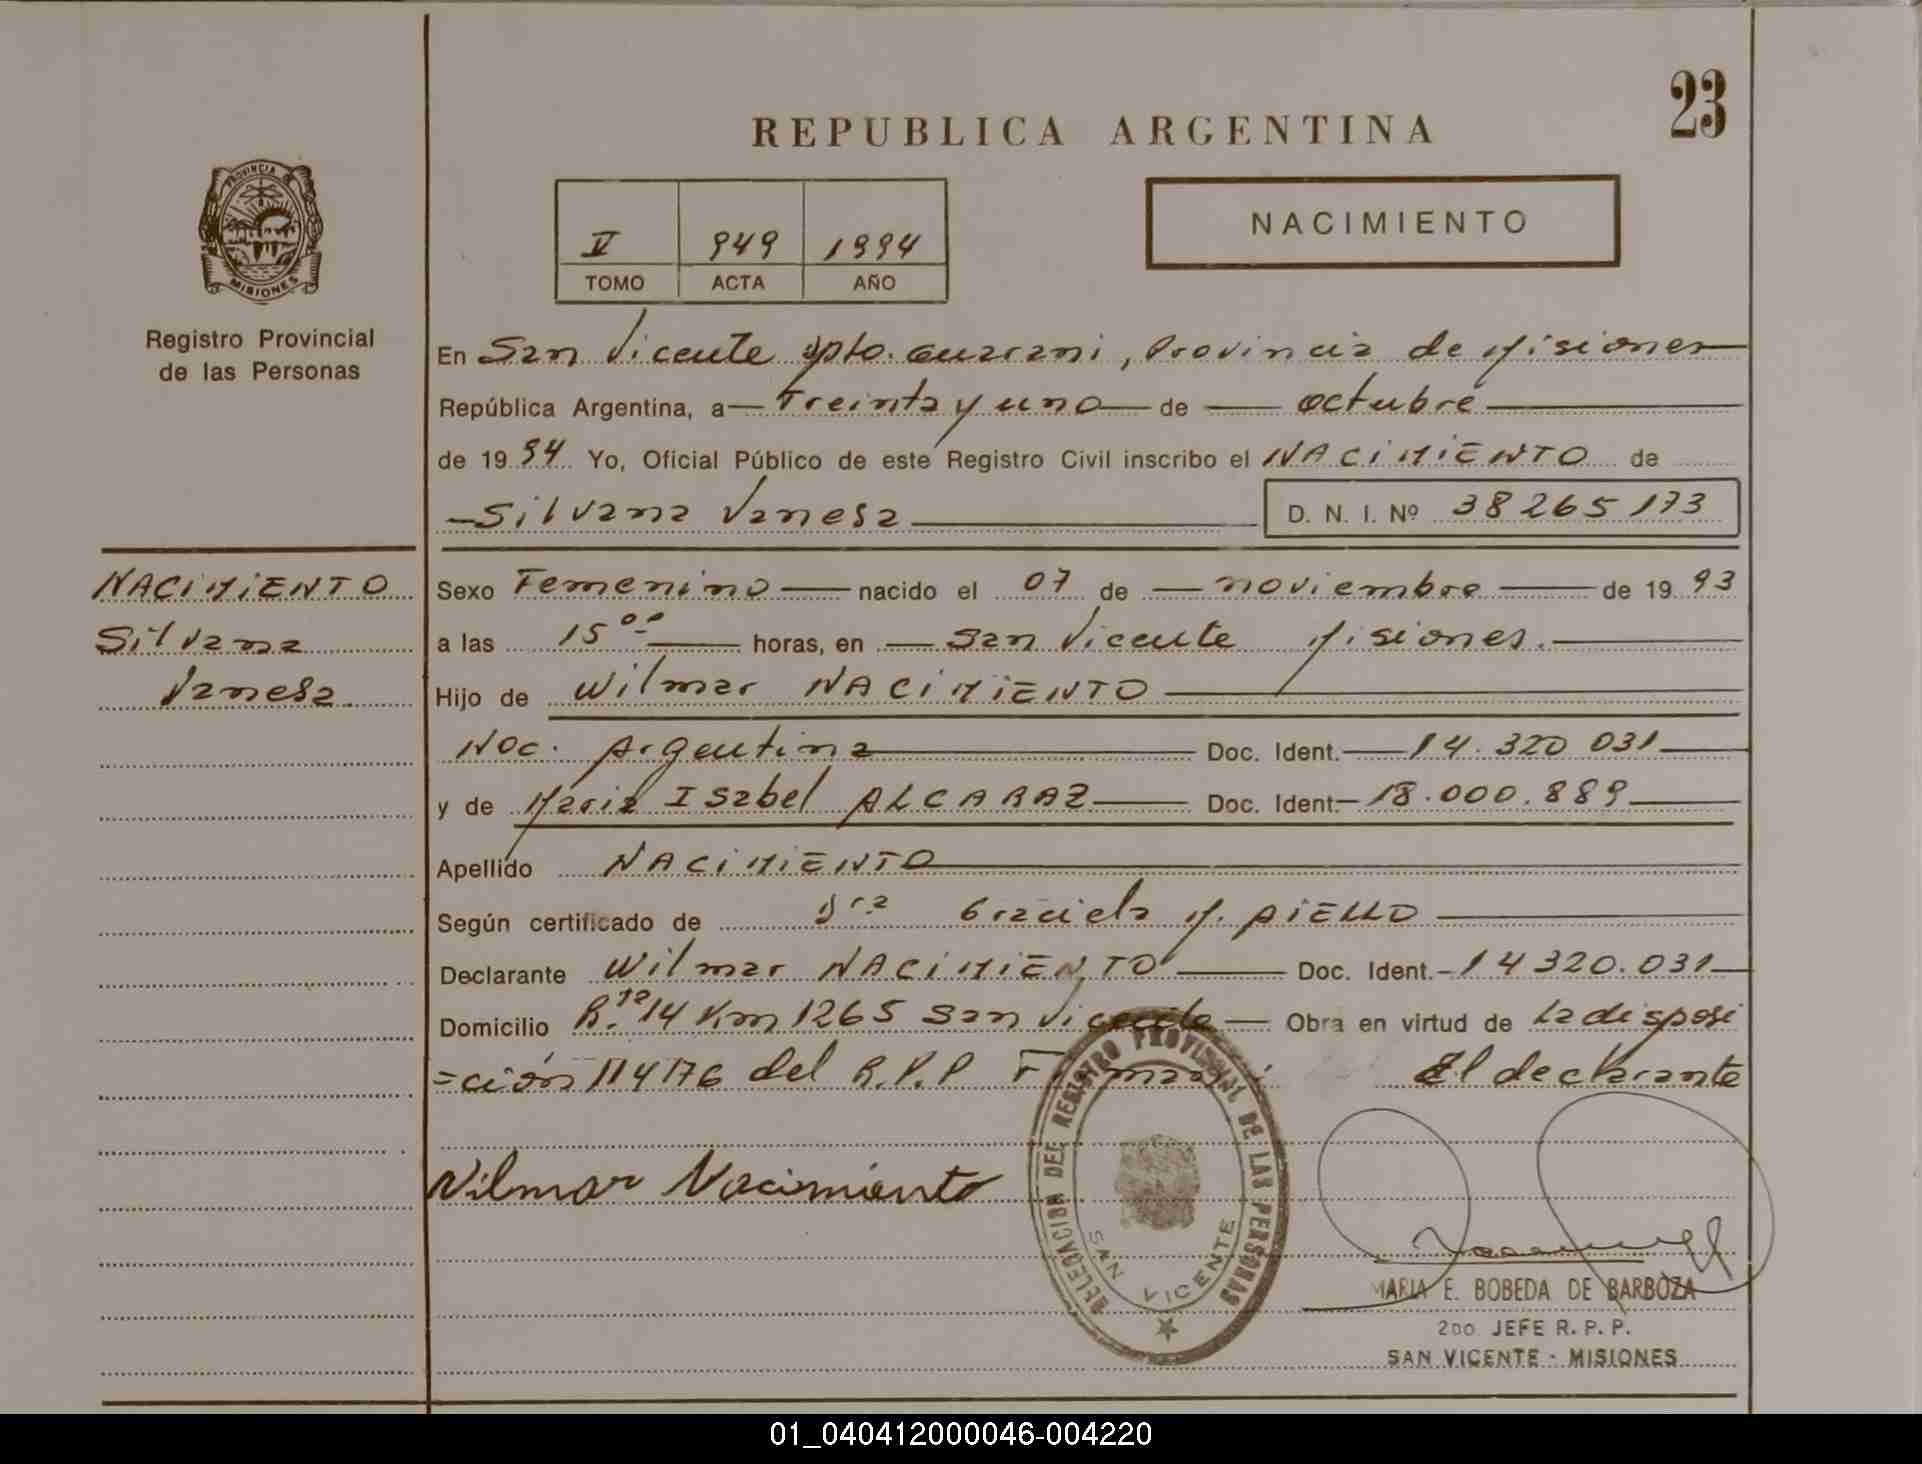 23
REPUBLICA ARGENTINA
PROVINCIA DE
MISIONES
Registro Provincial
de las Personas
V 949 1994
TOMO ACTA AÑO
NACIMIENTO
En San Vicente Dpto. Guarani, Provincia de Misiones
República Argentina, a Treinta y uno de octubre
de 1994 Yo, Oficial Público de este Registro Civil inscribo el NACIMIENTO de
Silvana Vanesa D. N. I. Nº 38265173
NACIMIENTO
Silvana
Vanesa.
Sexo Femenino nacido el 07 de noviembre de 1993
a las 15 00 horas, en San Vicente Misiones.
Hijo de Wilmar NACIMIENTO
Nac. Argentina Doc. Ident. 14.320 031
y de Maria Isabel ALCARAZ Doc. Ident. 18.000.889
Apellido NACIMIENTO
Según certificado de Dra Graciela M. AIELLO
Declarante Wilmar NACIMIENTO Doc. Ident. 14320.031
Domicilio R. 14 Km 1265 San Vicente Obra en virtud de la disposi
=ción 114176 del R.P.P El declarante
Wilmar Nacimiento
DELEGACION DEL REGISTRO PROVINCIAL DE LAS PERSONAS
SAN VICENTE
MARIA E. BOBEDA DE BARBOZA
2DO. JEFE R. P. P.
SAN VICENTE - MISIONES
01_040412000046-004220